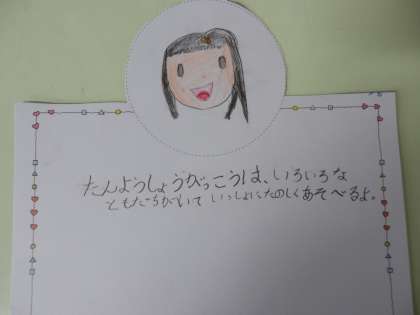 たんようしょうがっこうは、いろいろな
ともだちがいて いっしょにたのしくあそべるよ。